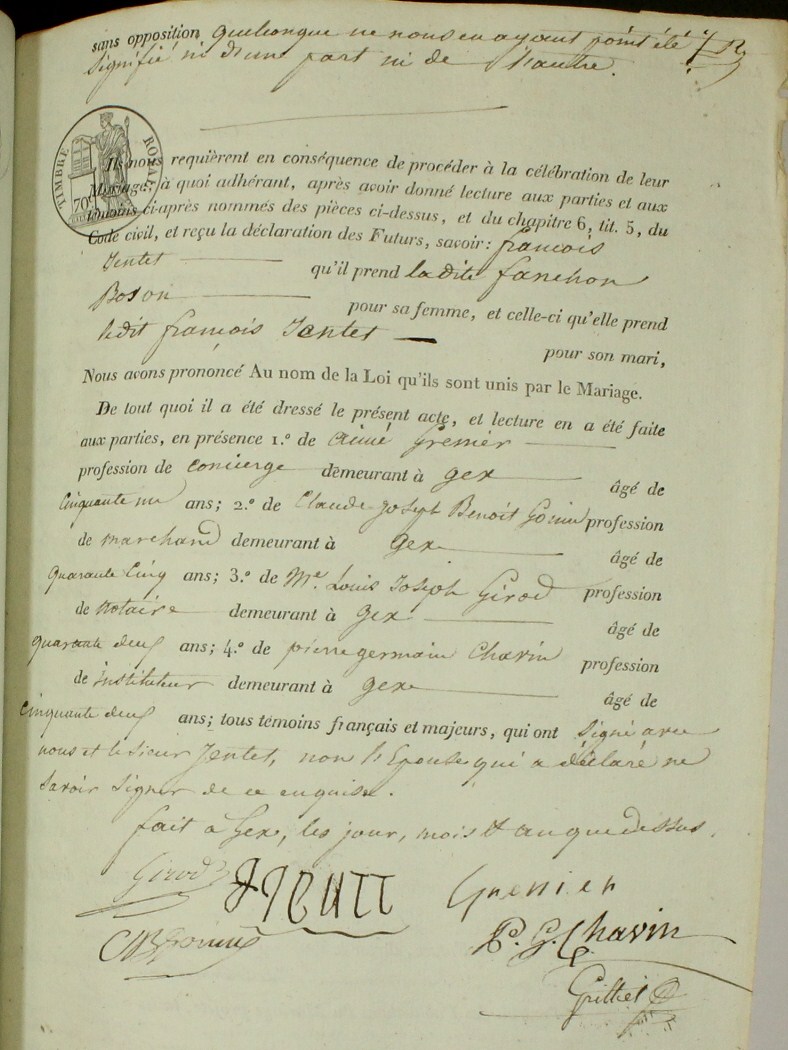 sans opposition quelconque ne nous en ayant point été
signifié ni d'une part ni de l'autre.
TIMBRE ROYAL
70
Ils nous requièrent en conséquence de procéder à la célébration de leur
Mariage; à quoi adhérant, après avoir donné lecture aux parties et aux
témoins ci-après nommés des pièces ci-dessus, et du chapitre 6, tit. 5, du
Code civil, et reçu la déclaration des Futurs, savoir: françois
Jentet qu'il prend ladite fanchon
Boson pour sa femme, et celle-ci qu'elle prend
ledit françois Jentet pour son mari,
Nous avons prononcé Au nom de la Loi qu'ils sont unis par le Mariage.
De tout quoi il a été dressé le présent acte, et lecture en a été faite
aux parties, en présence 1.º de aimé Grenier
profession de concierge demeurant à gex âgé de
cinquante un ans; 2.º de Claude joseph Benoit Gonin profession
de marchand demeurant à gex âgé de
quarante cinq ans; 3.º de Me. Louis Joseph Girod profession
de notaire demeurant à gex âgé de
quarante deux ans; 4.º de pierre germain Chavin profession
de instituteur demeurant à gex âgé de
cinquante deux ans; tous témoins français et majeurs, qui ont signé avec
nous et le sieur Jentet, non l'Epouse qui a déclaré ne
savoir signer de ce enquise.
fait à Gex, les jour, mois et an que dessus.
Girod Grenier
P. G. Chavin